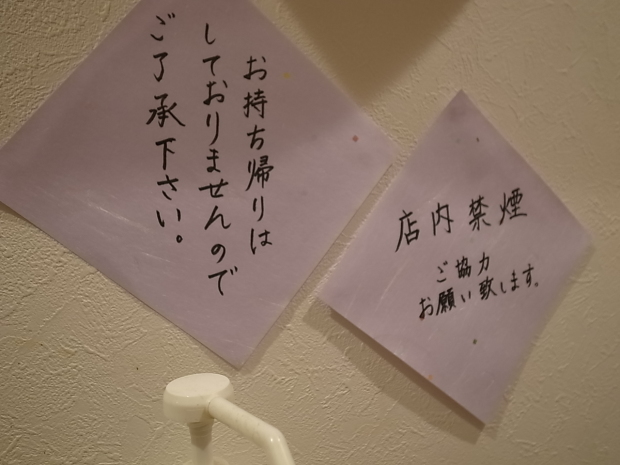 お持ち帰りは
しておりませんので
ご了承下さい。
店内禁煙
ご協力
お願い致します。